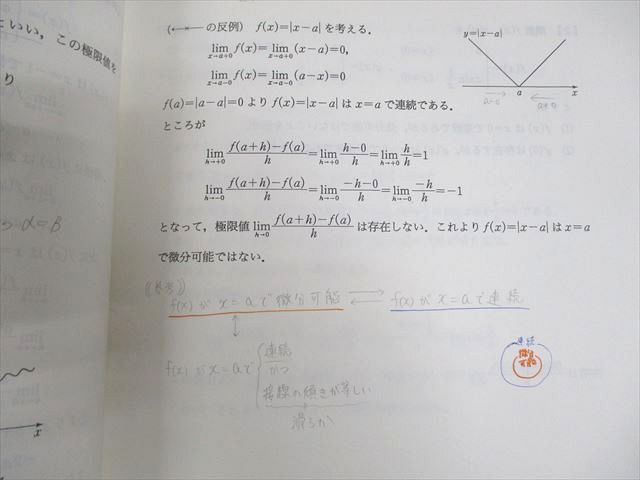 といい，この極限値を
り
(←×— の反例) f(x)=|x−a| を考える．
lim_{x→a+0} f(x)=lim_{x→a+0} (x−a)=0,
lim_{x→a−0} f(x)=lim_{x→a−0} (a−x)=0
f(a)=|a−a|=0 より f(x)=|x−a| は x=a で連続である．
ところが
lim_{h→+0} \frac{f(a+h)−f(a)}{h}=lim_{h→+0} \frac{h−0}{h}=lim_{h→+0} \frac{h}{h}=1
lim_{h→−0} \frac{f(a+h)−f(a)}{h}=lim_{h→−0} \frac{−h−0}{h}=lim_{h→−0} \frac{−h}{h}=−1
となって，極限値 lim_{h→0} \frac{f(a+h)−f(a)}{h} は存在しない．これより f(x)=|x−a| は x=a
で微分可能ではない．
y=|x−a|
a
x
a-0
a+0
α=β
(参考)
f(x) が x=a で微分可能 ⇄ f(x) が x=a で連続
↕
f(x) が x=a で
連続
かつ
接線の傾きが等しい
滑らか
連続
微分
可能
x